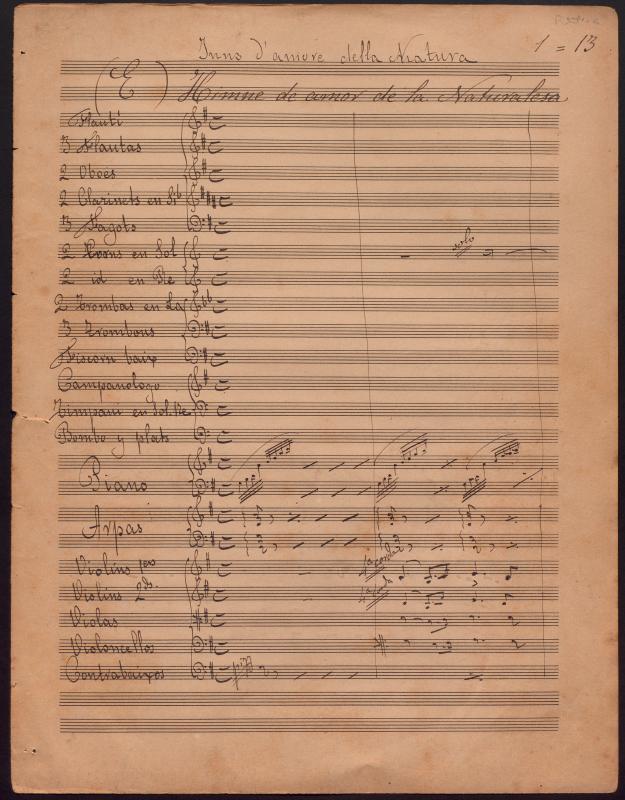 Inno d'amore della Natura
1 = 13
(E) Himne de amor de la Naturalesa
Flauti
3 Flautas
2 Oboes
2 Clarinets en Sib
3 Fagots
2 Corns en Sol
solo
2 id en Re
2 Trombas en La
3 Trombons
Fiscorn baix
Campanologo
Timpani en Sol. Re
Bombo y plats
Piano
Arpas
Violins 1ers
4a corda
Violins 2ds.
4a corda
Violas
Violoncellos
Contrabaixos